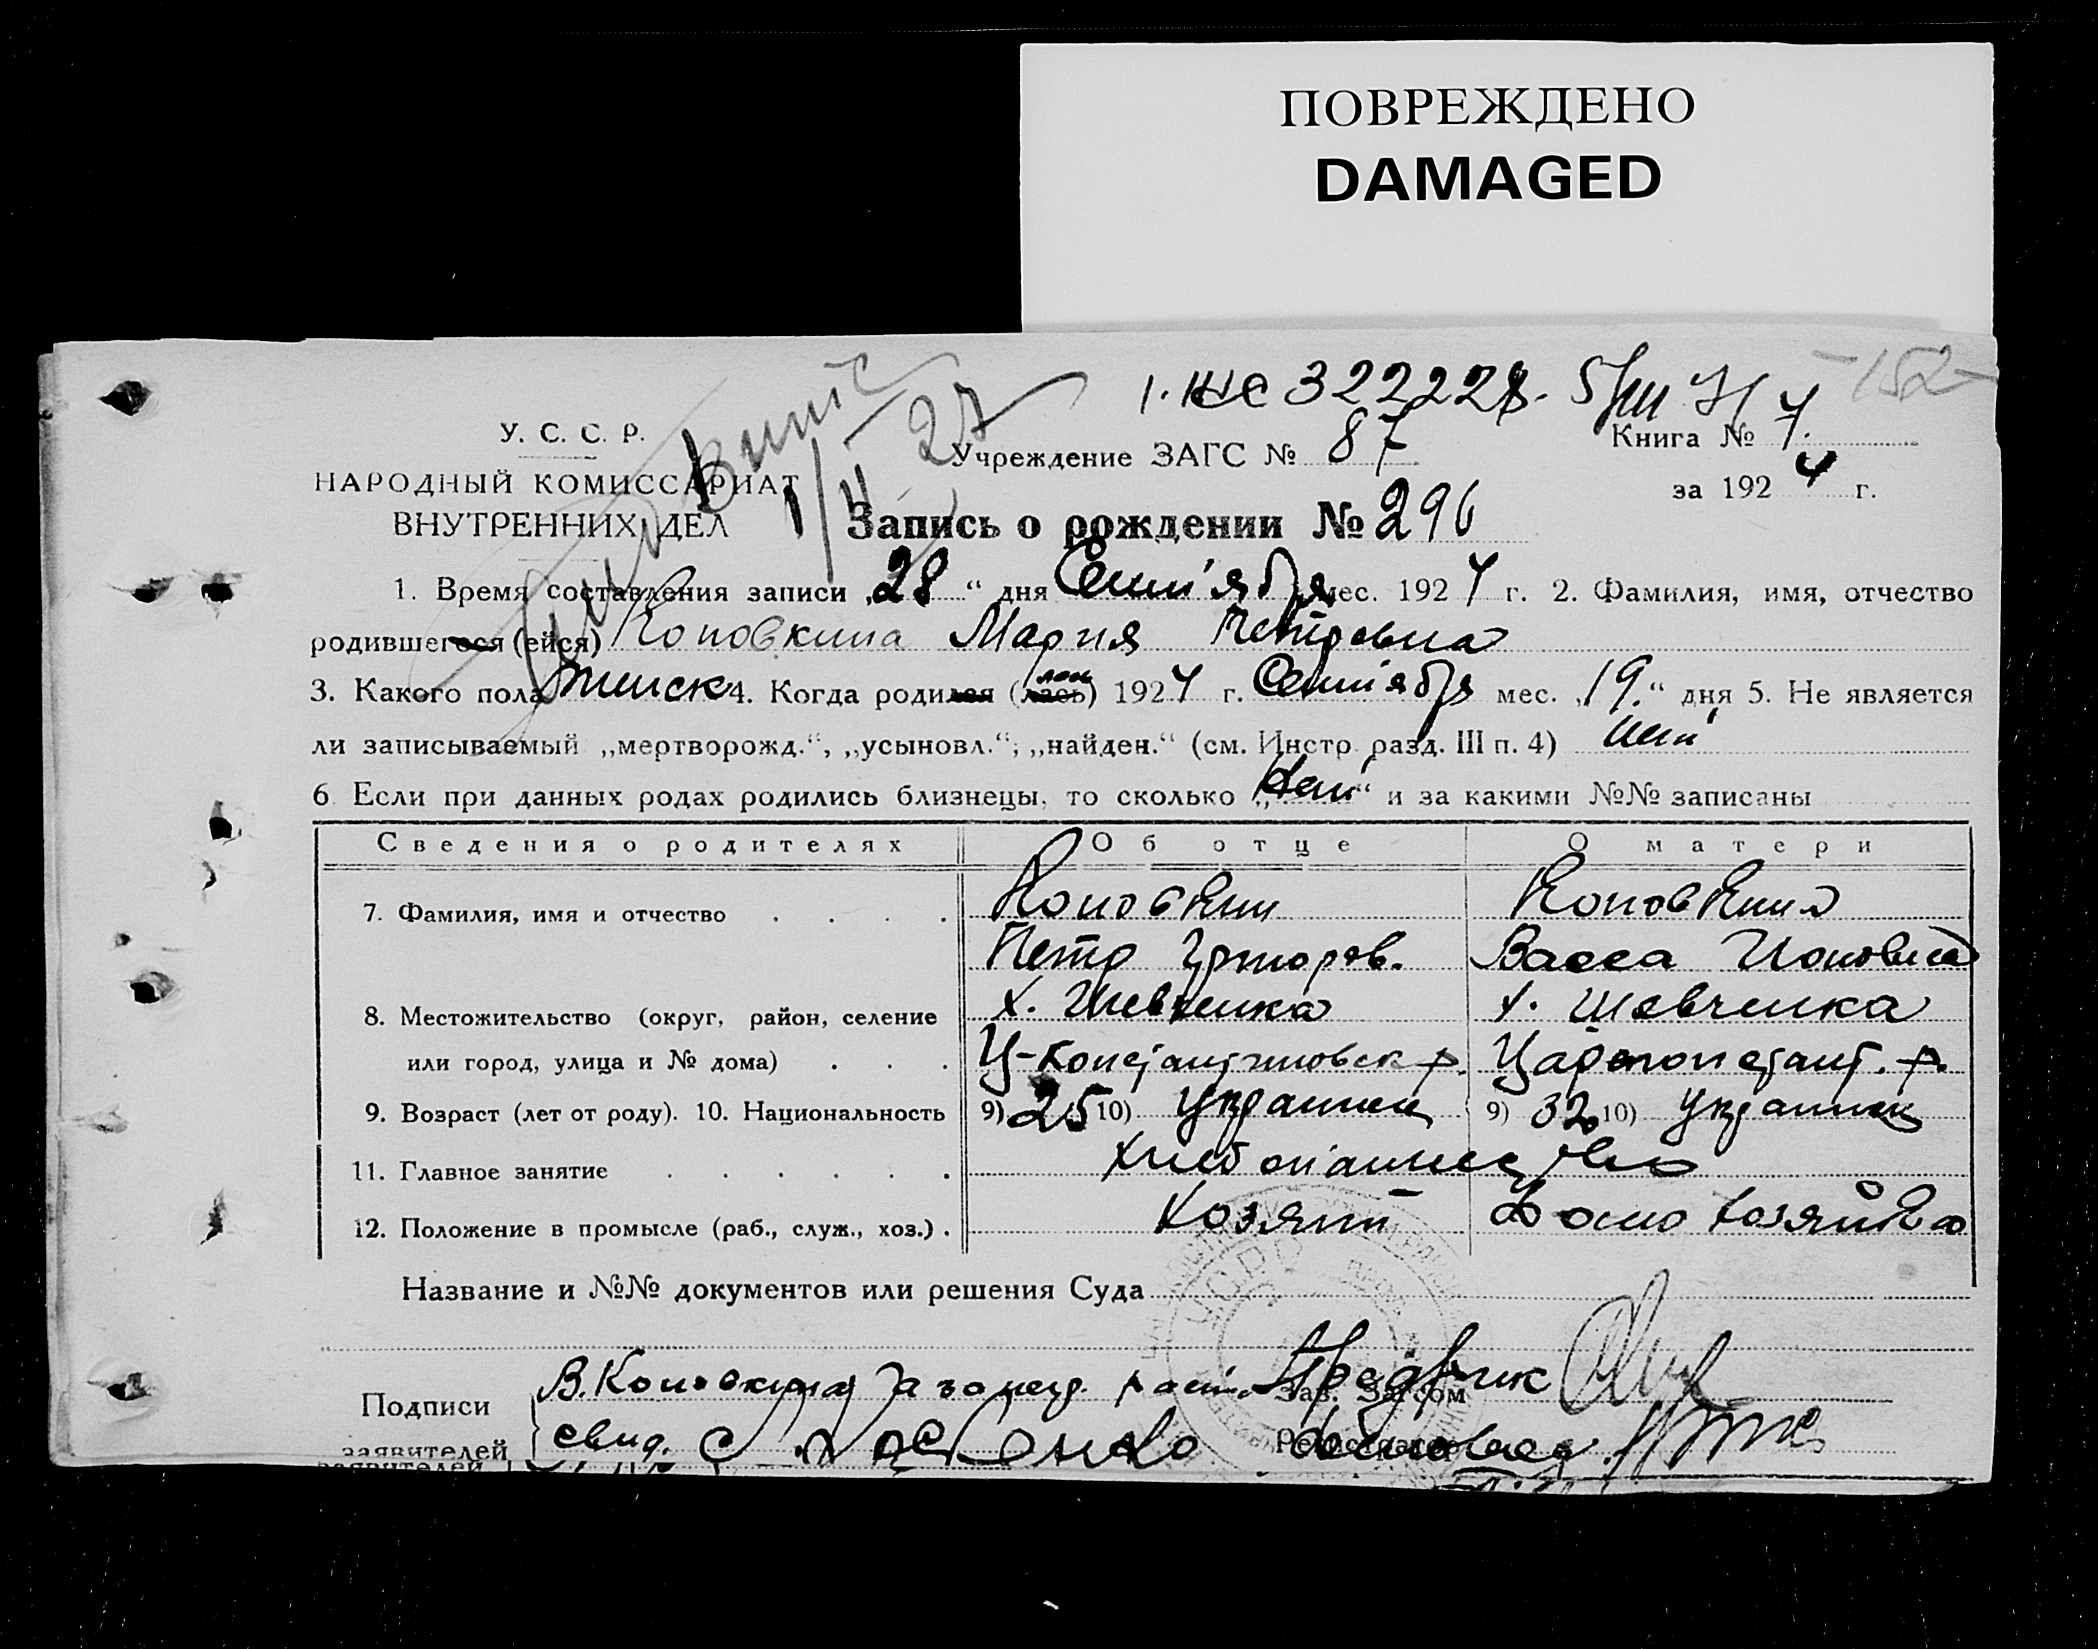 ПОВРЕЖДЕНО
DAMAGED
-152-
I. ЖС 322228.
У. С. С. Р.
Учреждение ЗАГС № 87
Книга № 4.
НАРОДНЫЙ КОМИССАРИАТ
за 192 4 г.
ВНУТРЕННИХ ДЕЛ
Запись о рождении № 296
1. Время составления записи „28“ дня Сентября мес. 1924 г. 2. Фамилия, имя, отчество
родившегося (ейся) Коновкина Мария Петровна
3. Какого пола женск 4. Когда родился (лась) 1924 г. Сентября мес. „19.“ дня 5. Не является
ли записываемый „мертворожд.“, „усыновл.“, „найден.“ (см. Инстр. разд. III п. 4) нет
6 Если при данных родах родились близнецы, то сколько „нет“ и за какими №№ записаны
Сведения о родителях Об отце О матери
7. Фамилия, имя и отчество Коновкин Коновкина
Петр Григоров. Васса Ионовна
8. Местожительство (округ, район, селение х. Шевченка х. Шевченка
или город, улица и № дома) Ц-Константиновск р. Царекон стант. р.
9. Возраст (лет от роду). 10. Национальность 9) 25 10) Украинец 9) 32 10) Украинец
11. Главное занятие хлебопашество
12. Положение в промысле (раб., служ., хоз.) Хозяин Домохозяйка
Название и №№ документов или решения Суда
Подписи В. Коновкина
Зав. Загсом
заявителей свид.
Регистратор
заявителей